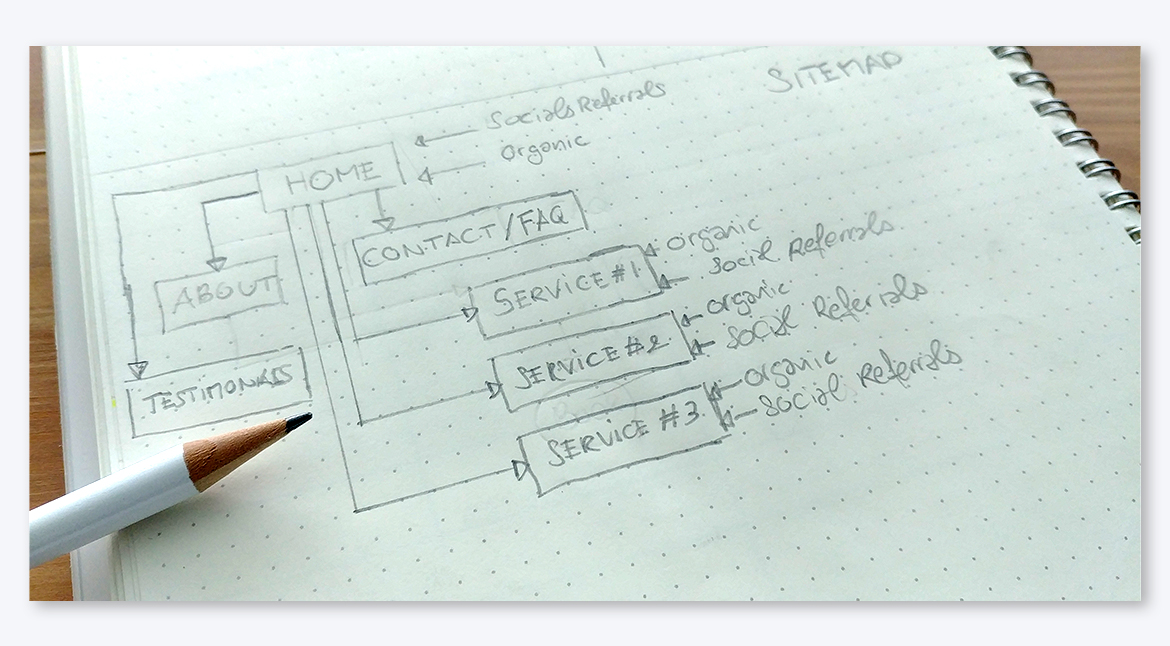 SITEMAP
Socials Referrals
Organic
HOME
CONTACT/FAQ
ABOUT
TESTIMONIALS
SERVICE #1
organic
Social Referrals
SERVICE #2
organic
Social Referrals
SERVICE #3
organic
Social Referrals